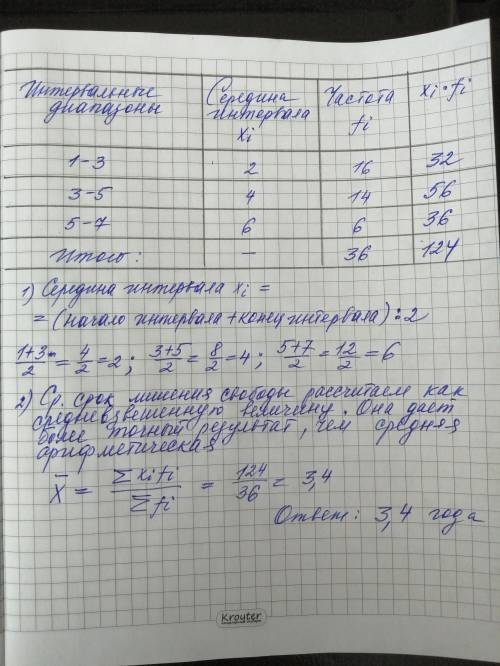 Интервальные диапазоны Середина интервала xi Частота fi xi·fi
1-3 2 16 32
3-5 4 14 56
5-7 6 6 36
Итого: — 36 124
1) Середина интервала xi =
= (начало интервала + конец интервала) : 2
1+3/2 = 4/2 = 2; 3+5/2 = 8/2 = 4; 5+7/2 = 12/2 = 6
2) Ср. срок лишения свободы рассчитаем как
средневзвешенную величину. Она дает
более точный результат, чем средняя
арифметическая
X̄ = Σxifi/Σfi = 124/36 = 3,4
Ответ: 3,4 года
Kroyter